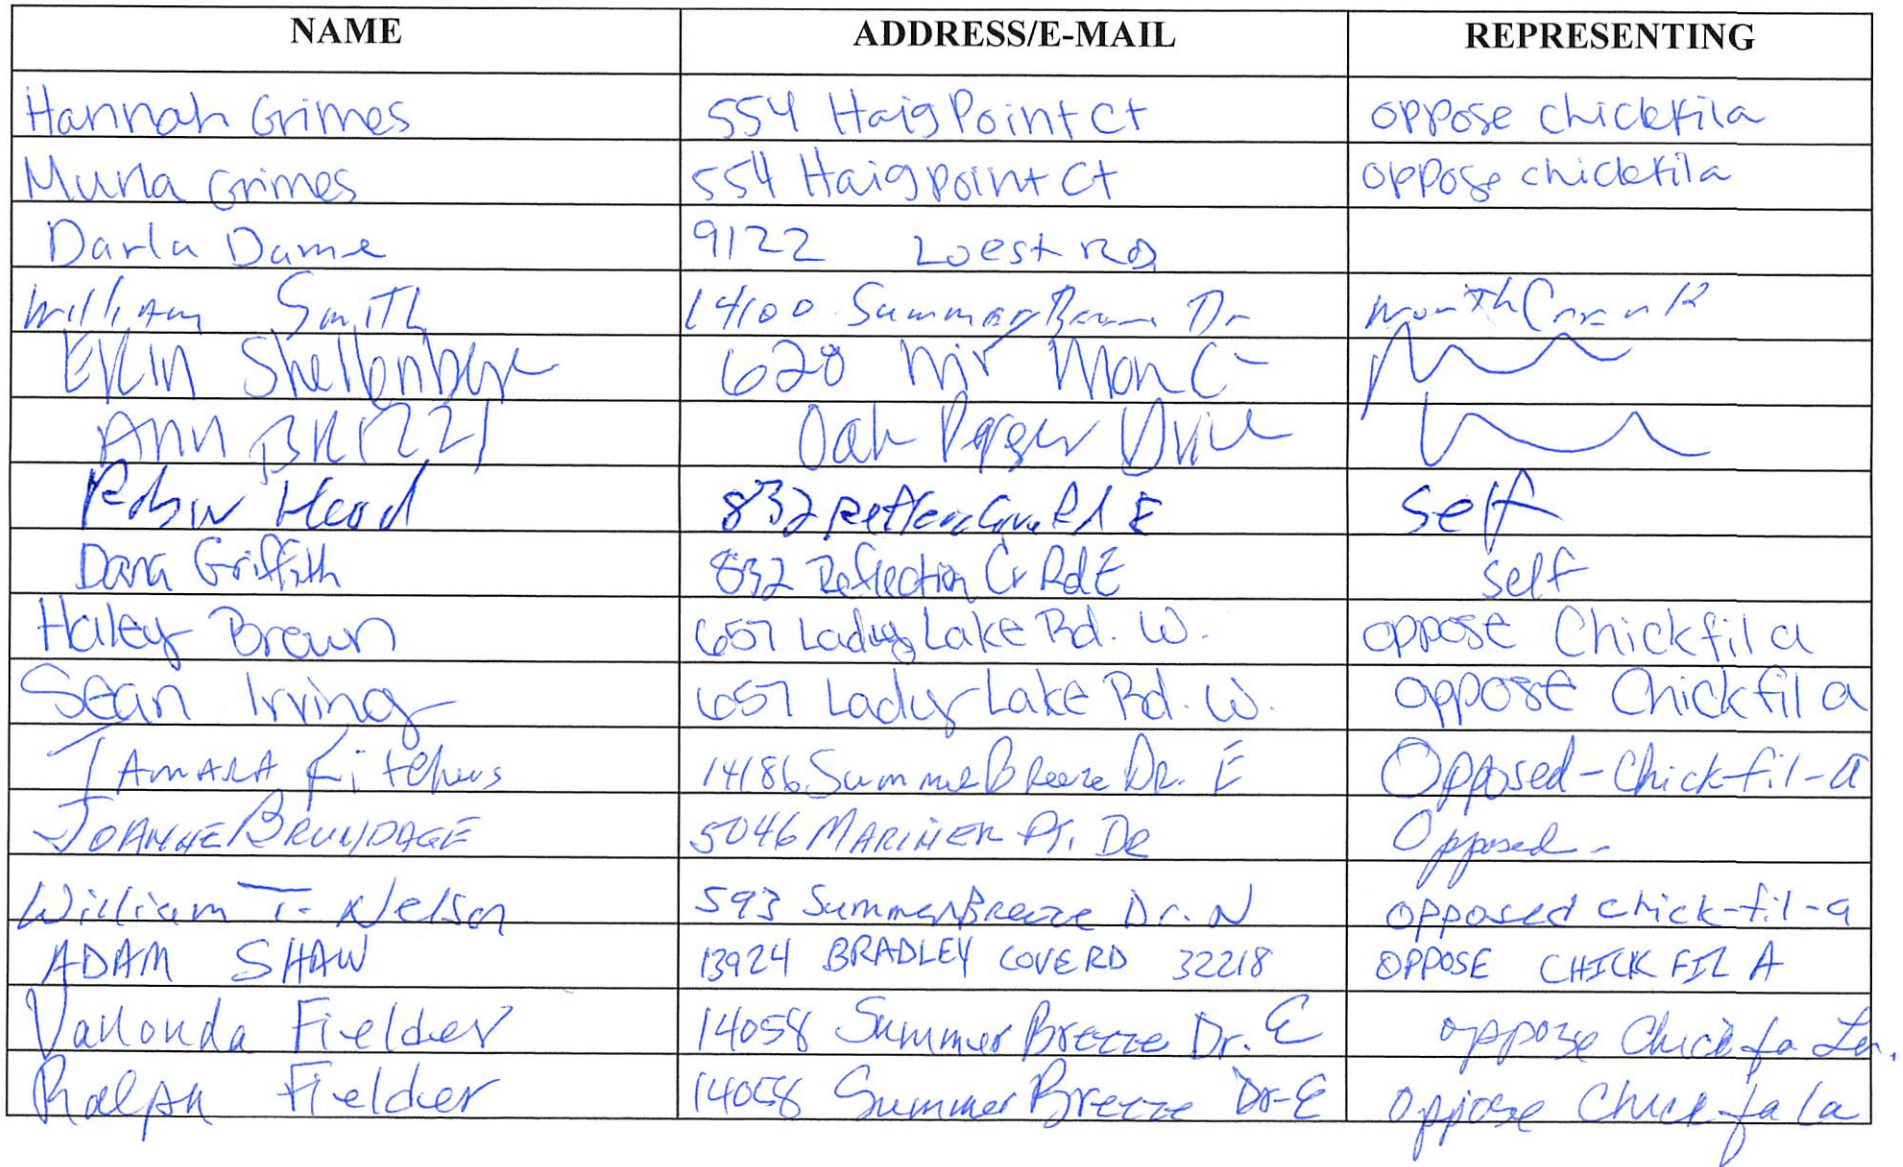 NAME ADDRESS/E-MAIL REPRESENTING
Hannah Grimes 554 Haig Point Ct oppose chickfila
Murla Grimes 554 Haig point Ct oppose chickfila
Darla Dame 9122 West RD
William Smith 14100 Summer Dr
Shellenberger 628 Ct
ANN BRIZZI Oak Drive
Robin Head 832 Rd E self
Dana Griffith 832 Reflection Cv Rd E self
Haley Brown 657 Ladys Lake Rd. W. oppose Chickfila
Sean Irving 657 Ladys Lake Rd. W. oppose Chickfila
TAMARA 14186 Summer Breeze Dr. E Opposed-Chick-fil-a
JOANNE BRUNDAGE 5046 MARINER Pt. DR Opposed-
William T. Nelson 593 Summer Breeze Dr. N opposed chick-fil-a
ADAM SHAW 13924 BRADLEY COVE RD 32218 OPPOSE CHICK FIL A
Vallonda Fielder 14058 Summer Breeze Dr. E oppose
Ralph Fielder 14058 Summer Breeze Dr-E oppose